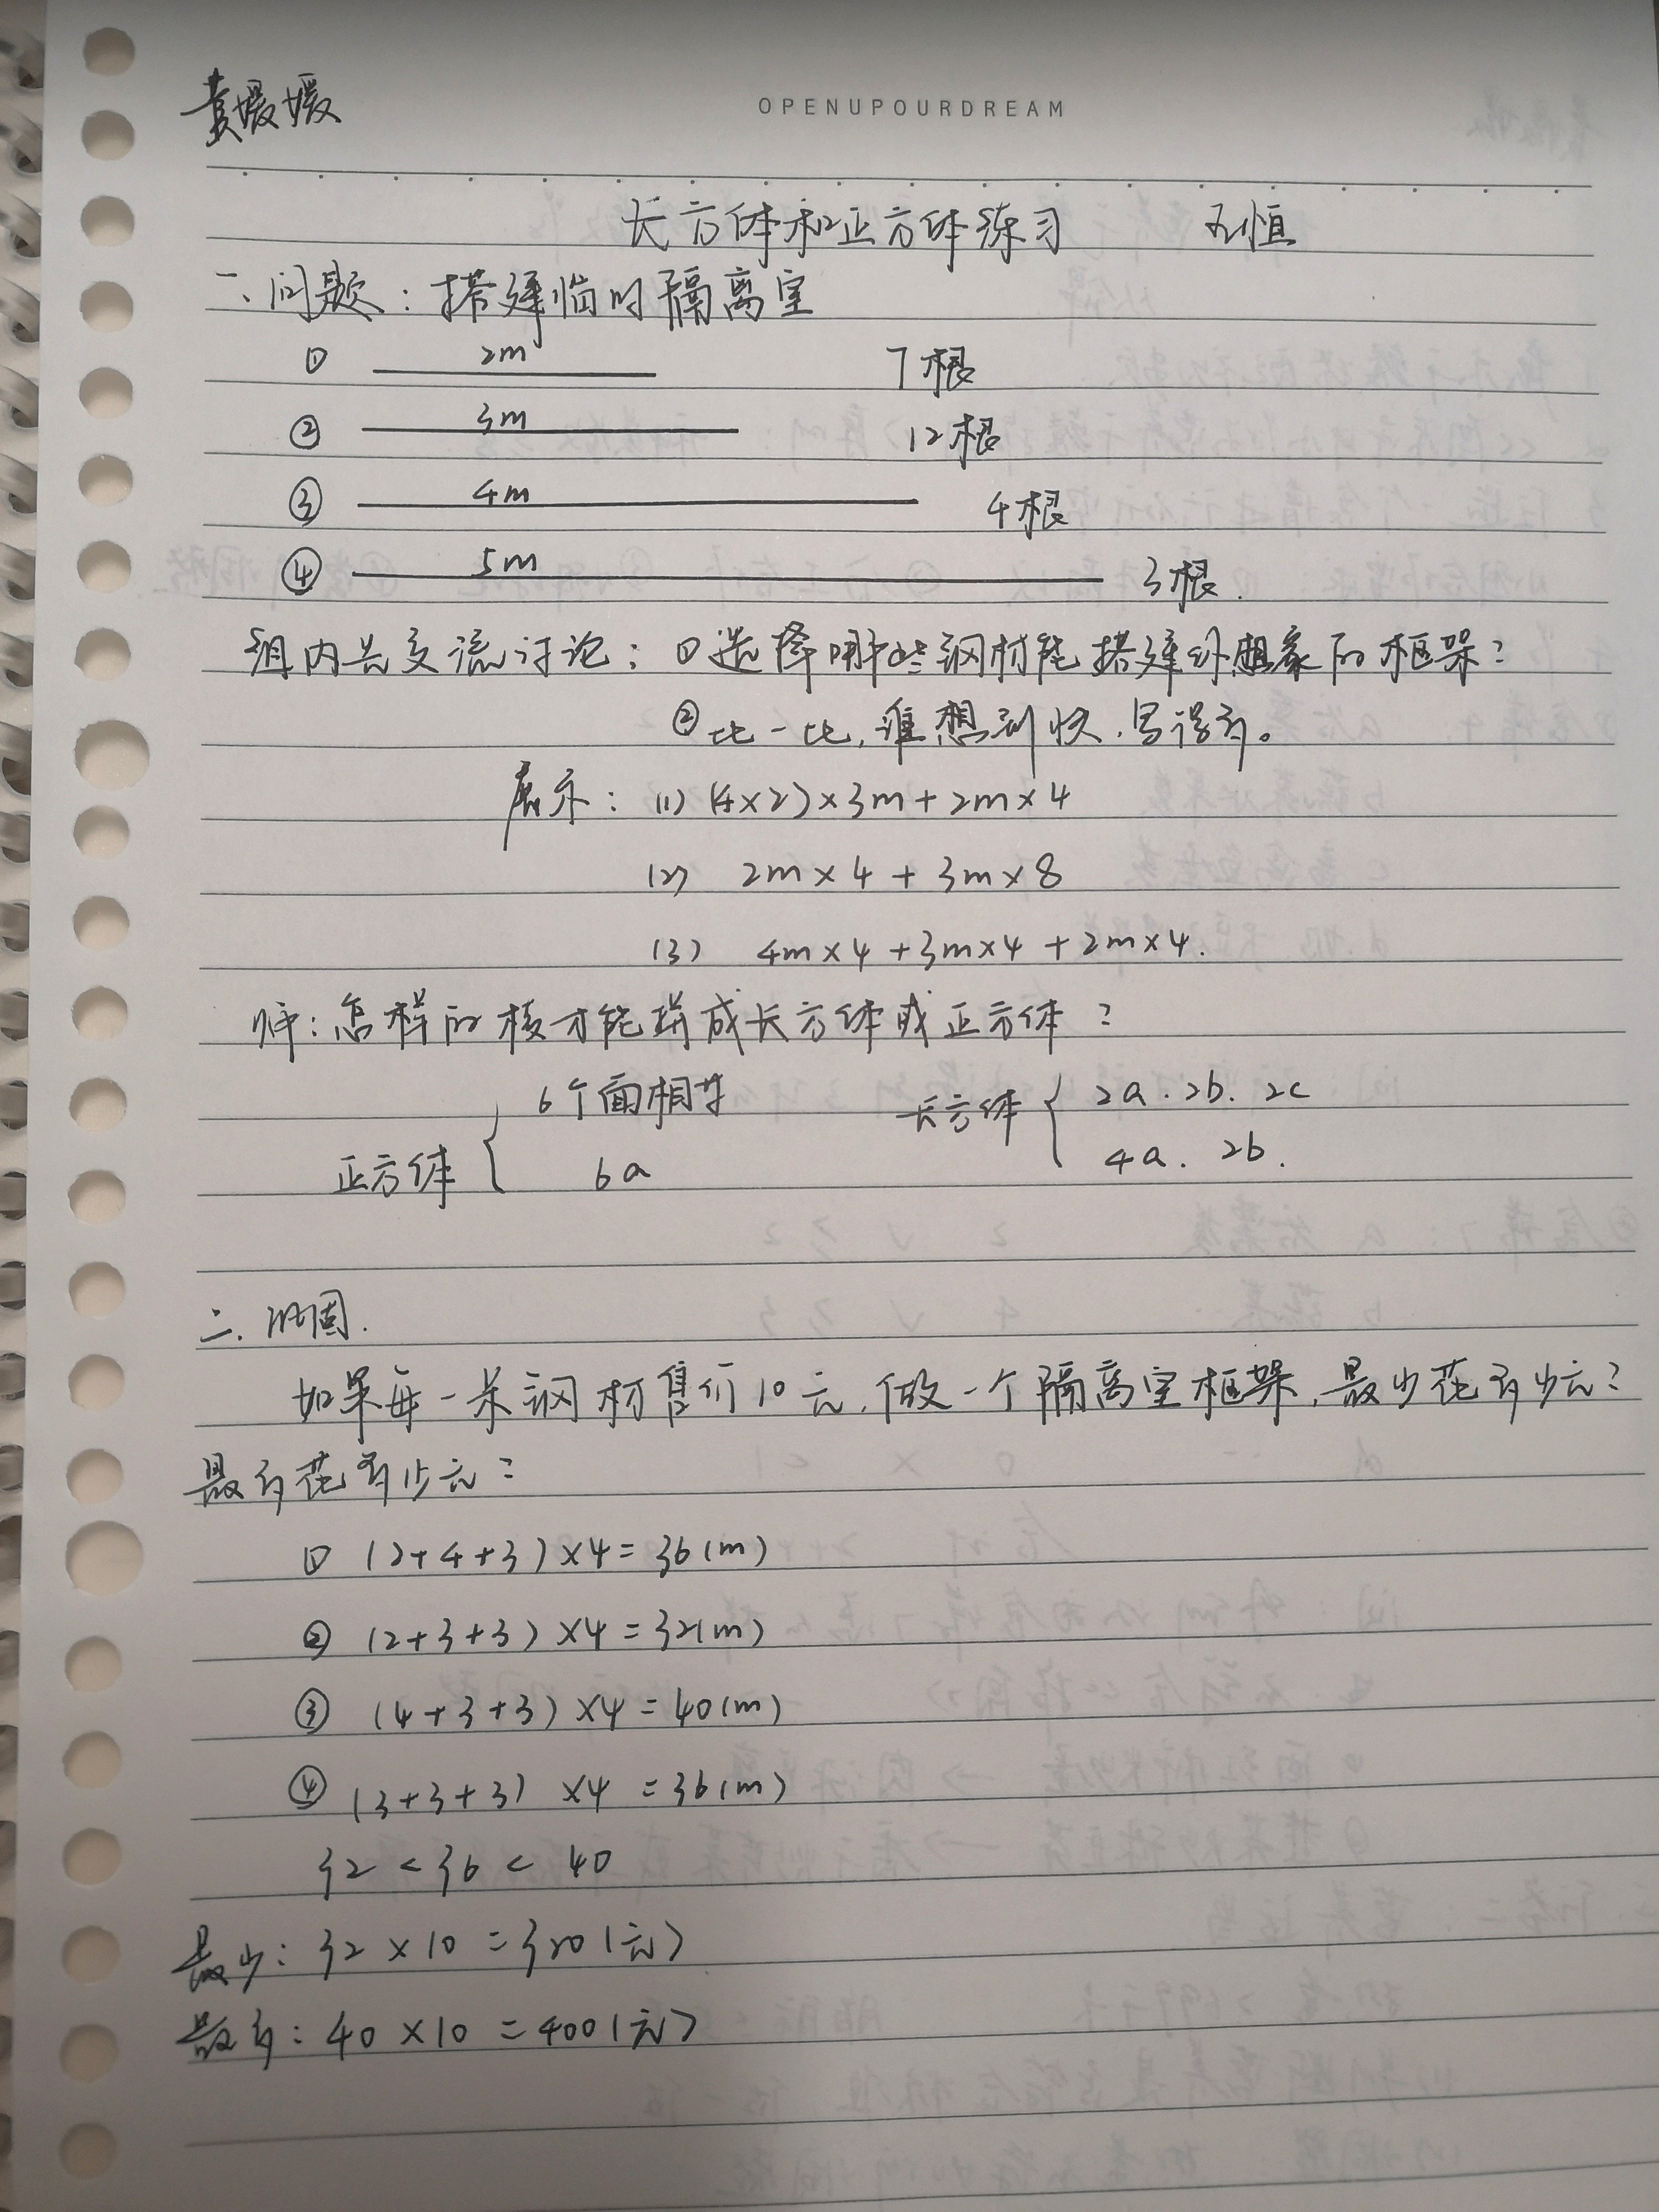 袁媛媛
OPENUPOURDREAM
长方体和正方体练习
一、问题：搭建临时隔离室
① 2m 7根
② 3m 12根
③ 4m 4根
④ 5m 3根.
组内共交流讨论：①选择哪些钢材能搭建 想象的框架？
②比一比，谁想到快，写得多。
展示：(1) (4×2)×3m+2m×4
(2) 2m×4+3m×8
(3) 4m×4+3m×4+2m×4.
师：怎样的棱才能拼成长方体或正方体？
正方体 { 6个面相等
6a
长方体 { 2a. 2b. 2c
4a. 2b.
二. 巩固.
如果每一米钢材售价10元,做一个隔离室框架,最少花多少元？
最多花多少元？
① (2+4+3)×4=36(m)
② (2+3+3)×4=32(m)
③ (4+3+3)×4=40(m)
④ (3+3+3)×4=36(m)
32<36<40
最少：32×10=320(元)
最多：40×10=400(元)